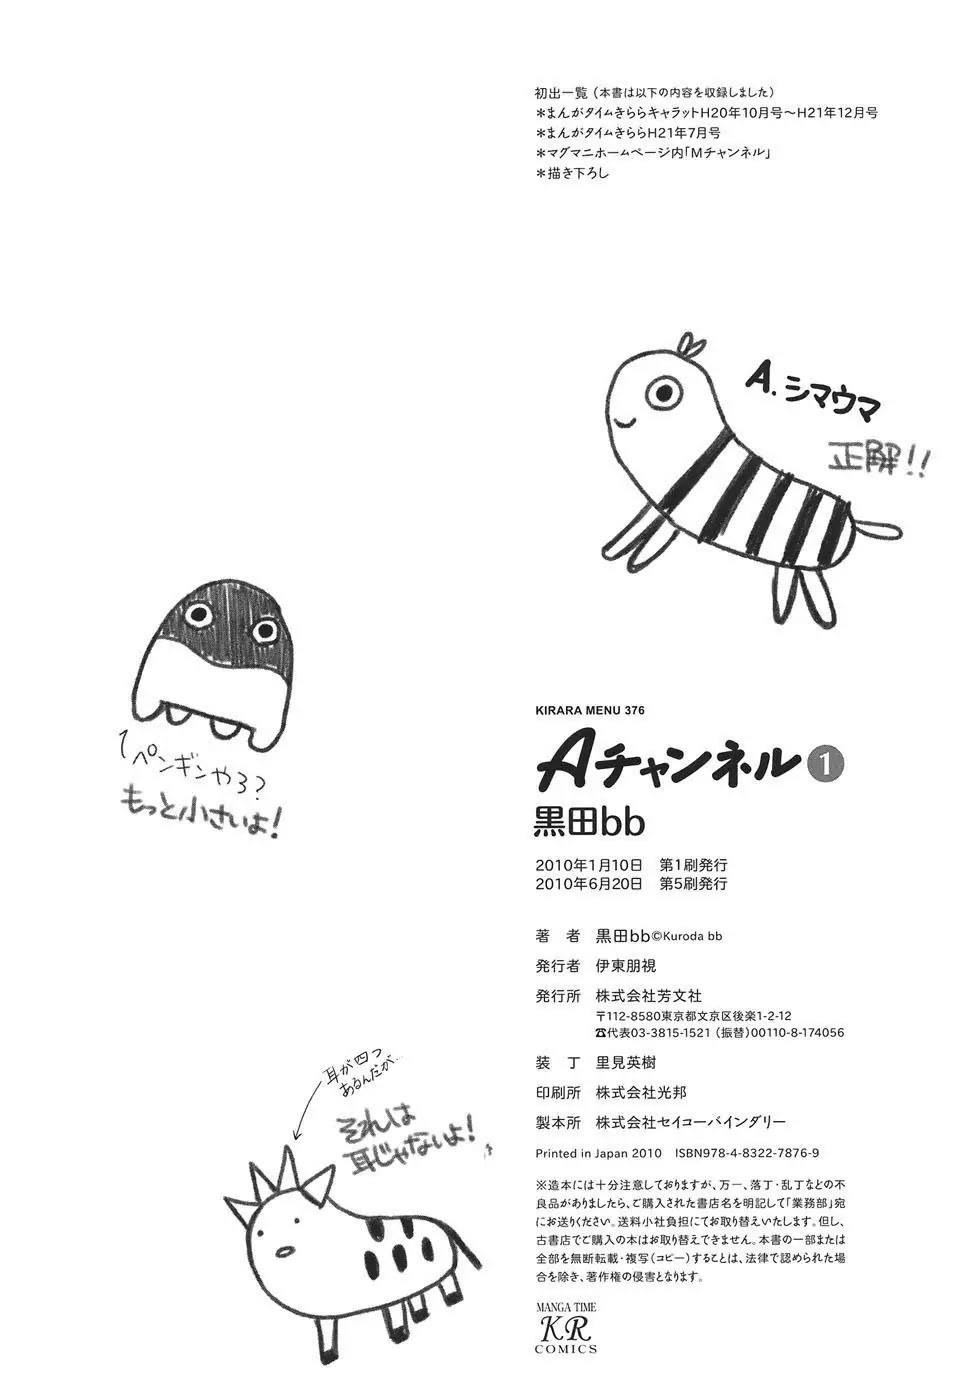 初出一覧（本書は以下の内容を収録しました）
＊まんがタイムきららキャラットH20年10月号〜H21年12月号
＊まんがタイムきららH21年7月号
＊マグマニホームページ内「Mチャンネル」
＊描き下ろし
A.シマウマ
正解!!
ペンギンやろ?
もっと小さいよ!
耳が四つ
あるんだが…
それは
耳じゃないよ!
KIRARA MENU 376
Aチャンネル 1
黒田bb
2010年1月10日　第1刷発行
2010年6月20日　第5刷発行
著　者　黒田bb©Kuroda bb
発行者　伊東朋視
発行所　株式会社芳文社
〒112-8580東京都文京区後楽1-2-12
☎代表03-3815-1521（振替）00110-8-174056
装　丁　里見英樹
印刷所　株式会社光邦
製本所　株式会社セイコーバインダリー
Printed in Japan 2010　ISBN978-4-8322-7876-9
※造本には十分注意しておりますが、万一、落丁・乱丁などの不
良品がありましたら、ご購入された書店名を明記して「業務部」宛
にお送りください。送料小社負担にてお取り替えいたします。但し、
古書店でご購入の本はお取り替えできません。本書の一部または
全部を無断転載・複写（コピー）することは、法律で認められた場
合を除き、著作権の侵害となります。
MANGA TIME
KR
COMICS